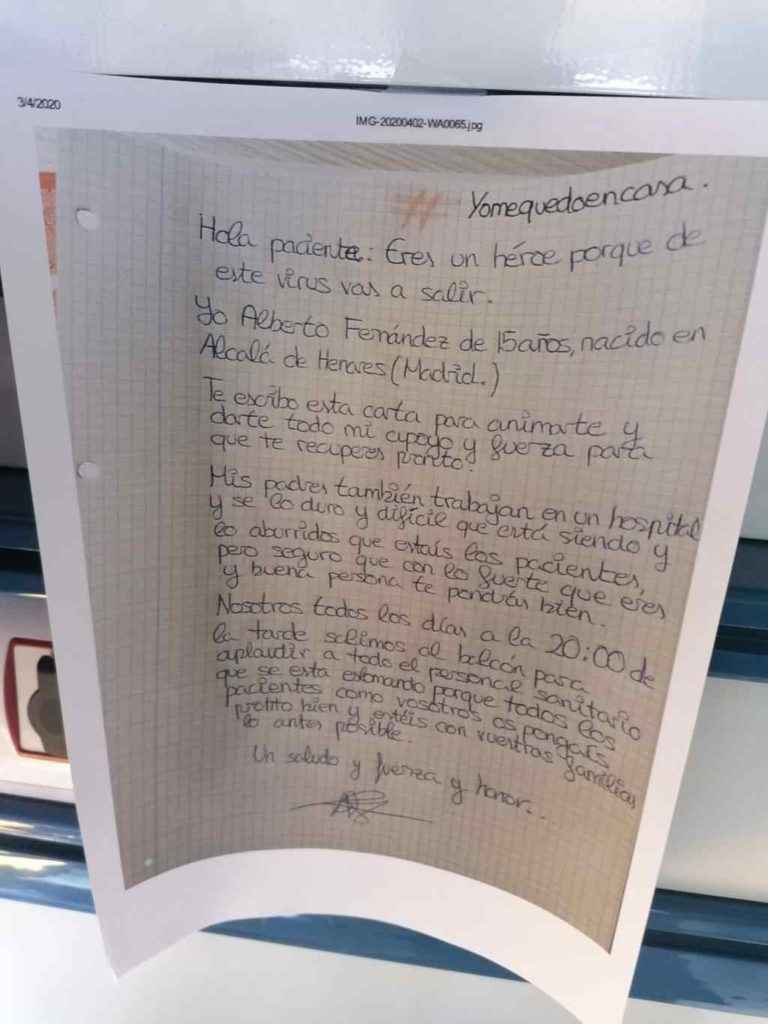 3/4/2020
IMG-20200402-WA0065.jpg
# Yomequedoencasa.
Hola paciente: Eres un héroe porque de
este virus vas a salir.
Yo Alberto Fernández de 15 años, nacido en
Alcalá de Henares (Madrid.)
Te escribo esta carta para animarte y
darte todo mi apoyo y fuerza para
que te recuperes pronto.
Mis padres también trabajan en un hospital
y se lo duro y difícil que está siendo y
lo aburridos que estaís los pacientes,
pero seguro que con lo fuerte que eres
y buena persona te pondrás bien.
Nosotros todos los días a la 20:00 de
la tarde salimos al balcón para
aplaudir a todo el personal sanitario
que se esta esforzando porque todos los
pacientes como vosotros os pongaís
pronto bien y estéis con vuestras familias
lo antes posible.
Un saludo y fuerza y honor...